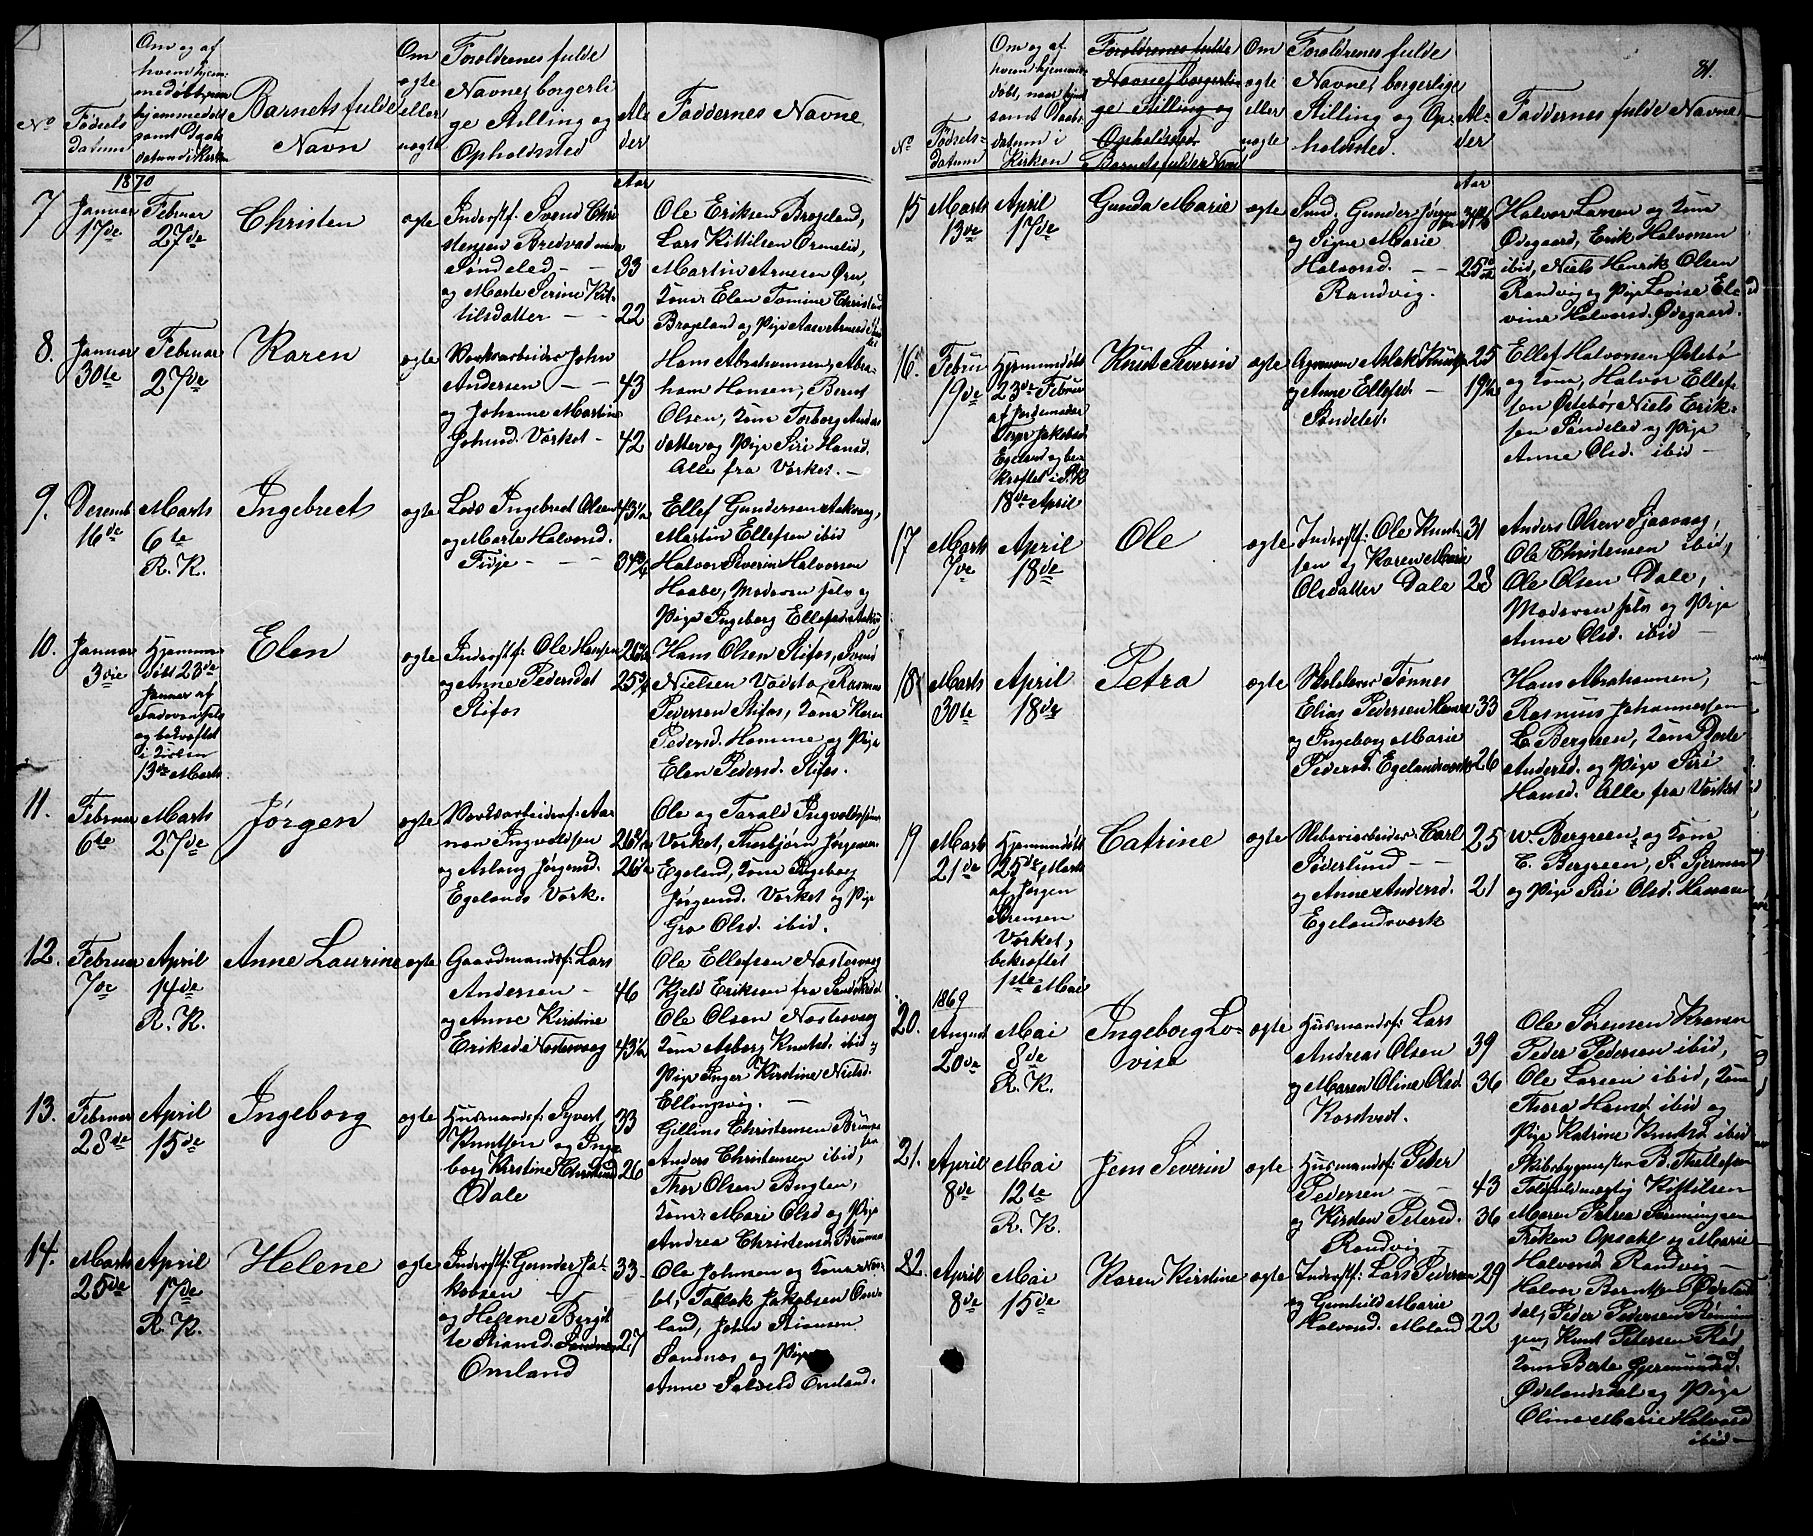 No
Fødsels
datum
Om og af
hvem hjem-
medøbt, naar
hjemmedøbt
samt Daabs
datum i Kirken
Barnets fulde
Navn
Om
ægte
eller
uægte
Forældrenes fulde
Navne, borgerli
ge Stilling og
Opholdssted
Al
der
Faddernes Navne
1870
Aar
7
Januar
17de
Februar
27de
Christen
ægte
Inderstf: Svend Chri
stensen Bredvad
Søndeled - - 33
og Marte Serine Kit-
tilsdatter - - 22
Ole Eriksen Brogeland,
Lars Kittilsen Ormelid,
Martin Arnesen Øen,
Kone Elen Tomine Christensd
Brogeland og Pige Aase Arnesd
8.
Januar
30te
Februar
27de
Karen
ægte
Værksarbeider John
Andersen - - 43
og Johanne Martine
Johnsd. Værket - 42
Hans Abrahamsen, Abra-
ham Hansen, Bernt
Olsen, Kone Torborg Anders
datter og Pige Siri Hansd.
Alle fra Værket. -
9.
Decemb
16de
Marts
6te
R. K.
Ingebreth
ægte
Lods Ingebret Olsen 43½
og Marte Halvorsd.
Fie - - - 34¾
Ellef Gundersen Aakvaag,
Martin Ellefsen ibid
Halvor Severin Halvorsen
Haabe, Moderen selv og
Pige Ingeborg Ellefsd Aakvag
10.
Januar
3die
Hjemme
døbt 23de
Januar af
Faderen selv
og bekræftet
i Kirken
13de Marts
Elen
ægte
Inderstf: Ole Hansen
og Anne Pedersdat 25¾
Stifos
Hans Olsen Stifos, Svend
Nielsen Vadsta, Rasmus
Pedersen Stifos, Kone Karen
Pedersd. Homme og Pige
Elen Pedersd. Stifos.
11.
Februar
6te
Marts
27de
Jørgen
ægte
Værksarbeiderf: Aa-
non Ingvoldsen
og Aslaug Jørgensd.
Egelands Værk.
Ole og Tarald Ingvoldssønner
Værket, Thorbjørn Jørgensen
Egeland, Kone Ingeborg
Jørgensd. Værket og Pige
Gro Olsd. ibid.
12.
Februar
7de
April
14de
R. K.
Anne Laurine
ægte
Gaardmandsf: Lars
Andersen - 46
og Anne Kirstine
Eriksd. Nostevaag 43½
Ole Ellefsen Nostevaag
Kjeld Eriksen fra Søndeled
Ole Olsen Nostevaag
Kone Asborg Knutsd. ibid og
Pige Inger Kirstine Nielsd.
Ellingsvig. -
13.
Februar
28de
April
15de
Ingeborg
ægte
Husmandsf: Syvert 33
Knutsen og Inge
borg Kirstine Christensd 26
Dale
Gillins Christensen
Anders Christensen ibid,
Thor Olsen Bugten,
Kone Mari Olsd og Pige
Andrea Christensd.
14.
Marts
25de
April
17de
R. K.
Helene
ægte
Inderstf: Gunder Ja- 33
kobsen -
og Helene Birgit
te Stiansd. Sandnes 27
Omland
Ole Johnsen og Kone
Tallak Jakobsen Om-
land, John Stiansen
Sandnes og Pige
Anne Omland.
81.
No
Fødsels-
datum
Om og af
hvem hjemme-
døbt, naar hjmd
samt Daabs-
datum i
Kirken
Forældrenes fulde
Navne, borgerli-
ge Stilling og
Opholdssted
Barnets fulde Navn
Om
ægte
eller
uægte
Forældrenes fulde
Navne, borgerlige
Stilling og Op-
holdssted.
Al-
der
Faddernes fulde Navne
Aar
15
Marts
13de
April
17de
Gunda Marie
ægte
Gunder Jørgen
og Signe Marie
Halvorsd. - -
Randvig.
Halvor Larsen og Kone
Ødegaard, Erik Halvorsen
ibid, Niels Henrik Olsen
Randvig og Pige Lovise El-
vine Halvorsd. Ødegaard.
16.
Februar
19de
Hjemmedøbt
23de Februar
af Jordemoder
Jakobsd
Egeland og be-
kræftet i S. K
18de April
Knut Severin
ægte
Aslak Knutsen 25
og Anne Ellefsd. - 19½
Søndeled.
Ellef Halvorsen Østebø
og Kone, Halvor Ellef
sen Østebø, Niels Erik-
sen Søndeled og Pige
Anne Olsd. ibid -
17
Marts
7de
April
18de
Ole
ægte
Inderstf: Ole Knut 31
sen og Karen Marie
Olsdatter Dale 28
Anders Olsen Sjaavaag,
Ole Christensen ibid,
Ole Olsen Dale,
Moderen selv og Pige
Anne Olsd. ibid -
18
Marts
30te
April
18de
Petra
ægte
Skolelærer Tønnes
Elias Pedersen 33
og Ingeborg Marie
Pedersd. Egelandsværk 26
Hans Abrahamsen,
Rasmus Johannessen
C. Bergreen, Kone Dorte
Andersd. og Pige Siri
Hansd. Alle fra Værket
19
Marts
21de
Hjemmedøbt
25de Marts
af Jørgen
Sørensen
Værket,
bekræftet
1ste Mai
Catrine
ægte
Carl 25
Søderlund - -
og Anne Andersd. 21
Egelandsværk
W. Bergreen, og Kone
C. Bergreen, P. Stjerman
og Pige Siri Olsd.
1869
20.
August
20de
Mai
8de
R. K.
Ingeborg Lo-
vise
ægte
Husmandsf: Lars
Andreas Olsen 39
og Maren Oline Olsd 36
Korstvedt.
Ole Sørensen
Peder Pedersen ibid,
Ole Larsen ibid, Kone
Thora Hansd ibid og
Pige Katrine Knutsd ibid
21.
April
8de
Mai
12te
R. K.
Jens Severin
ægte
Husmandsf: Peter
Pedersen - - 43
og Kirsten Petersd. 36
Randvig
Skibsbygmester B. Thellefsen
Toldfuldmægtig Kittilsen
Maren Petrea Sørmingsen
Frøken Opsahl og Marie
Halvorsd. Randvig -
22.
April
8de
Mai
15de
Karen Kirstine
ægte
Inderstf: Lars Pedersen 29
og Gunhild Marie
Halvorsd. Moland 22
Halvor Berntsen Ødelands
dal, Peder Pedersen
Knut Petersen
Kone Berte Gjermundsd.
Ødelandsdal og Pige
Oline Marie Halvorsd
ibid -